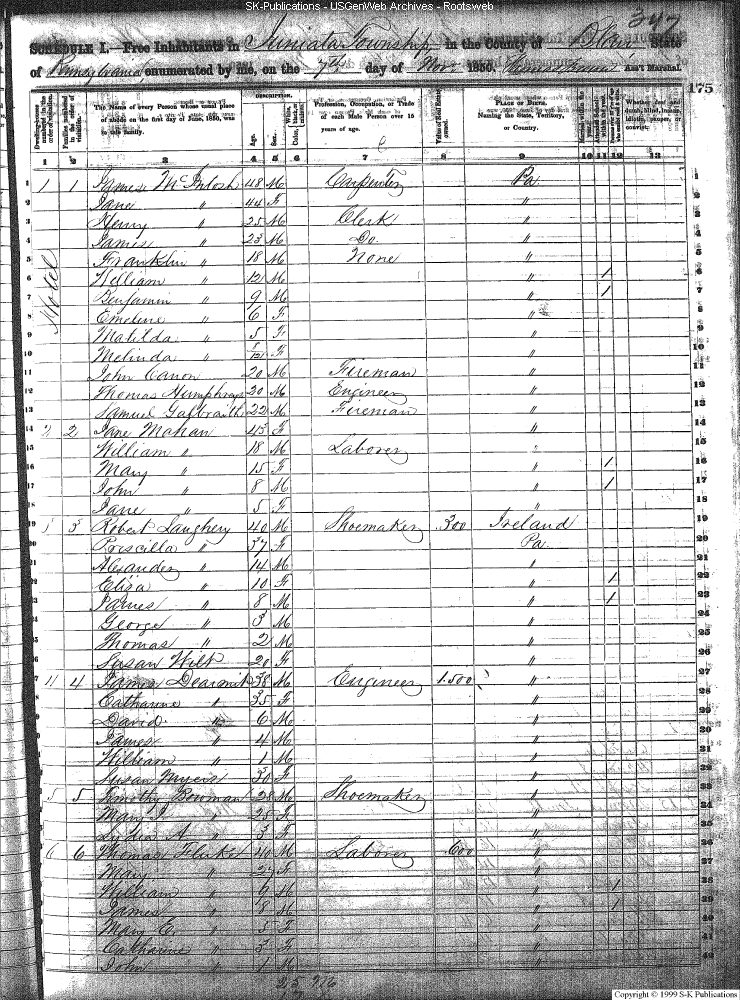 SK-Publications - USGenWeb Archives - Rootsweb
347
SCHEDULE I.—Free Inhabitants in Juniata Township in the County of Blair State
of Pennsylvania enumerated by me, on the 7th day of Novr 1850. Ass't Marshal.
175
Dwelling-houses numbered in the order of visitation. Families numbered in the order of visitation. The Name of every Person whose usual place of abode on the first day of June, 1850, was in this family. DESCRIPTION. Age. Sex. Profession, Occupation, or Trade of each Male Person over 15 years of age. Value of Real Estate owned. PLACE OF BIRTH. Naming the State, Territory, or Country. Whether deaf and dumb, blind, insane, idiotic, pauper, or convict.
1 2 3 4 5 6 7 8 9 10 11 12 13
1 1 1 James McIntosh 48 M Carpenter Pa. 1
2 Jane " 44 F " 2
3 Henry " 25 M Clerk " 3
4 James " 23 M Do. " 4
5 Franklin " 18 M None " 5
6 William " 12 M " / 6
7 Benjamin " 9 M " / 7
8 Hotel Emeline " 6 F " 8
9 Matilda " 5 F " 9
10 Melinda " 5/12 F " 10
11 John Canon 20 M Fireman " 11
12 Thomas Humphrays 30 M Engineer " 12
13 Samuel Galbraith 22 M Fireman " 13
14 2 2 Jane Mahan 43 F " 14
15 William " 18 M Laborer " 15
16 Mary " 15 F " / 16
17 John " 8 M " / 17
18 Jane " 5 F " 18
19 3 Robert Laughery 40 M Shoemaker 300 Ireland 19
20 Priscilla " 37 F Pa. 20
21 Alexander " 14 M " 21
22 Eliza " 10 F " / 22
23 James " 8 M " / 23
24 George " 3 M " 24
Thomas " 2 M " 25
Susan Wilt 20 F " 26
4 4 Dearmit 38 M Engineer 1.500 " 27
Catharine " 35 F " 28
David " 6 M " 29
James " 4 M " 30
William " 1 M " 31
Susan Myers 30 F " 32
5 5 Timothy Bowman 28 M Shoemaker " 33
Mary " 25 F " 34
Lydia A. " 3 F " 35
6 6 Thomas 40 M Laborer 600 " 36
Mary " 27 F " 37
William " 9 M " / 38
James " 8 M " / 39
Mary E. " 5 F " 40
Catharine " 3 F " 41
John " 1 M " 42
Copyright © 1999 S-K Publications